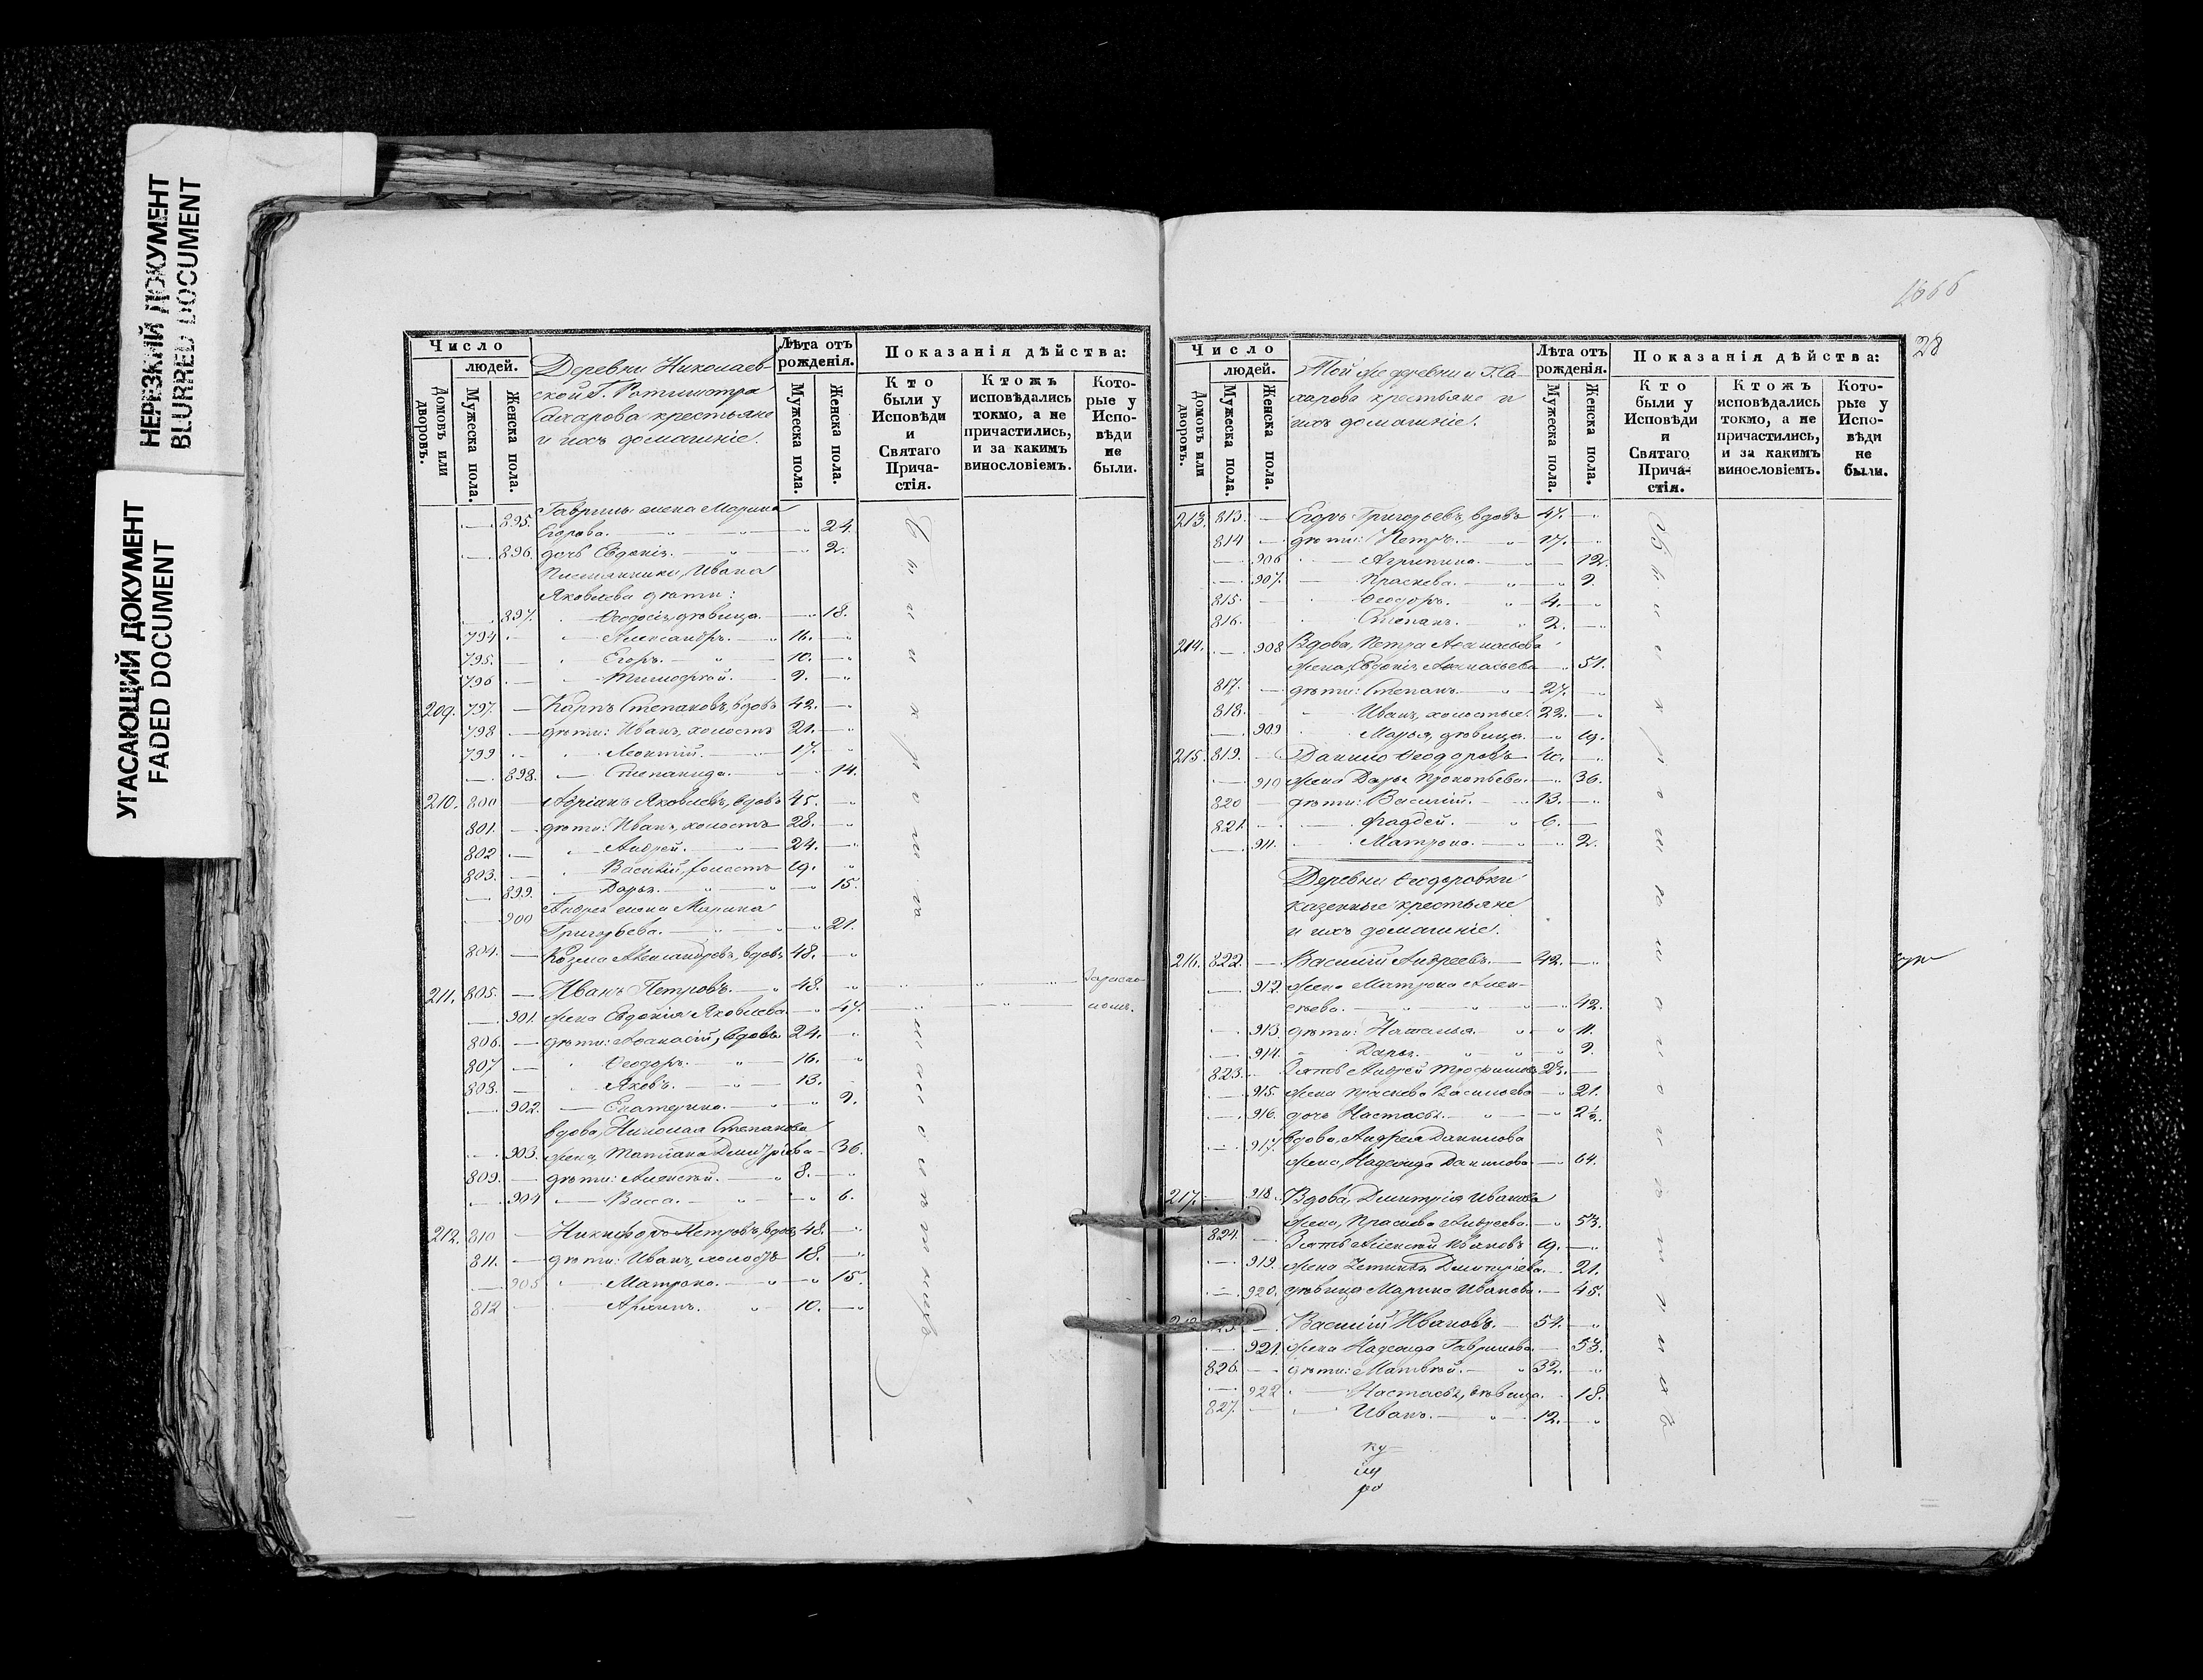 НЕРЕЗКИЙ ДОКУМЕНТ
BLURRED DOCUMENT
УГАСАЮЩИЙ ДОКУМЕНТ
FADED DOCUMENT
Число
людей.
Домовъ или дворовъ.
Мужеска пола.
Женска пола.
Деревни Николаев-
ской Г. Ротмистра
Сахарова крестьяне
и ихъ домашніе.
Лѣта отъ рожденія.
Мужеска пола.
Женска пола.
Показанія дѣйства:
Кто были у Исповѣди и Святаго Прича-стія.
Ктожъ исповѣдались токмо, а не причастились, и за какимъ винословіемъ.
Кото-рые у Испо-вѣди не были.
Гаврилы жена Марина
895. Егорова. 24.
896. дочь Евдокія. 2.
Племянники, Ивана
Яковлева дѣти:
897. Ѳеодосія, дѣвица. 18.
794 Александръ. 16.
795. Егоръ. 10.
796 Тимоѳей. 9.
209. 797. Карпъ Степановъ, вдовъ 42.
798 дѣти: Иванъ, холостъ 21.
799 Леонтій. 17.
898. Степанида. 14.
210. 800 Адріанъ Яковлевъ, вдовъ 45.
801. дѣти: Иванъ, холостъ 28.
802 Андрей. 24.
803. Василій, холостъ 19.
899. Дарья. 15.
900 Андрея жена Марина
Григорьева. 21.
804. Козма Александровъ, вдовъ 48.
211. 805. Иванъ Петровъ. 48. За раско-
901. жена Евдокія Яковлева. 47. ломъ.
806. дѣти: Аѳанасій, вдовъ 24.
807 Ѳеодоръ. 16.
808. Яковъ. 13.
902. Екатерина. 9.
вдова, Николая Степанова
903. жена, Татіана Димитріева 36.
809. дѣти: Алексѣй. 8.
904 Васса. 6.
212. 810 Никифоръ Петровъ, вдовъ 48.
811. дѣти: Иванъ, холостъ 18.
905 Матрона. 15.
812 Архипъ. 10.
28
Число
людей.
Домовъ или дворовъ.
Мужеска пола.
Женска пола.
Той же деревни и Г. Са-
харова крестьяне и
ихъ домашніе.
Лѣта отъ рожденія.
Мужеска пола.
Женска пола.
Показанія дѣйства:
Кто были у Исповѣди и Святаго Прича-стія.
Ктожъ исповѣдались токмо, а не причастились, и за какимъ винословіемъ.
Кото-рые у Испо-вѣди не были.
213. 813. Егоръ Григорьевъ, вдовъ 47.
814 дѣти: Петръ. 17.
906 Агрипина. 12.
907. Праскева. 9.
815. Ѳеодоръ. 4.
816. Степанъ. 2.
214. 908 Вдова, Петра Аѳанасьева
жена, Евдокія Аѳанасьева 51.
817. дѣти: Степанъ. 27.
818. Иванъ, холостые. 22.
909 Марья, дѣвица. 19.
215. 819. Данило Ѳеодоровъ 40.
910 жена Дарья Прокопьева. 36.
820 дѣти: Василій. 13.
821. Фаддей. 6.
911. Матрона. 2.
Деревни Ѳеодоровки
казенные крестьяне
и ихъ домашніе.
216. 822. Василій Андреевъ. 42.
912. жена Матрона Алек-
сѣева. 42.
913. дѣти: Наталья. 11.
914. Дарья. 9.
823. Зять Андрей Трофимовъ 23.
915. жена Праскева Васильева 21.
916. дочь Настасья. 2½.
917 вдова, Андрея Данилова
жена, Надежда Данилова 64.
217. 918. Вдова, Димитрія Иванова
жена, Праскева Андреева. 53.
824. Зять Алексѣй Ивановъ 19.
919. жена Димитріева. 21.
920. дѣвица Марина Иванова. 45.
Василій Ивановъ. 54.
921. жена Надежда Гаврилова. 53.
826. дѣти: Матвѣй. 32.
922 Настасья, дѣвица. 18.
827. Иванъ. 12.